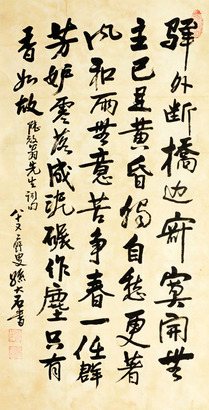 驛外断橋边寂寞開無
主已是黄昏獨自愁更著
風和雨無意苦争春一任群
芳妒零落成泥碾作塵只有
香如故 陸放翁先生詞句
叟孫大石書